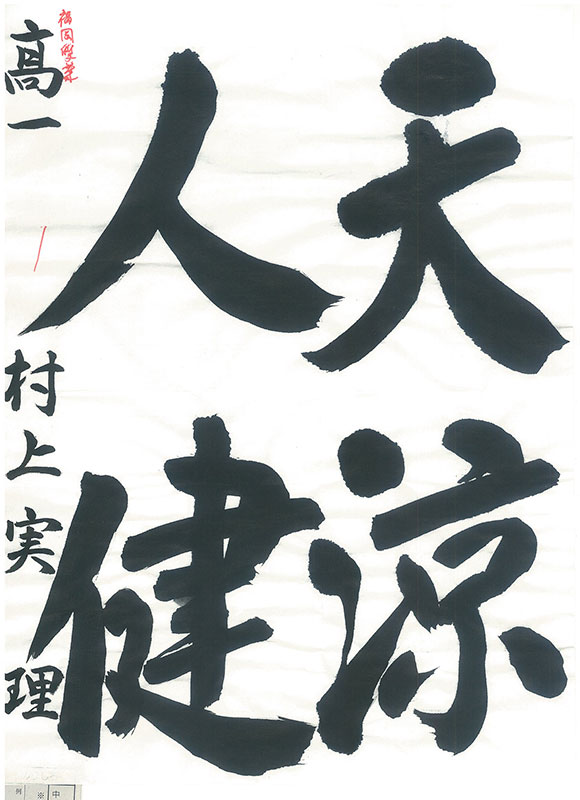 天涼
人健
高一 村上実理
福岡雙葉
例 ※ 中